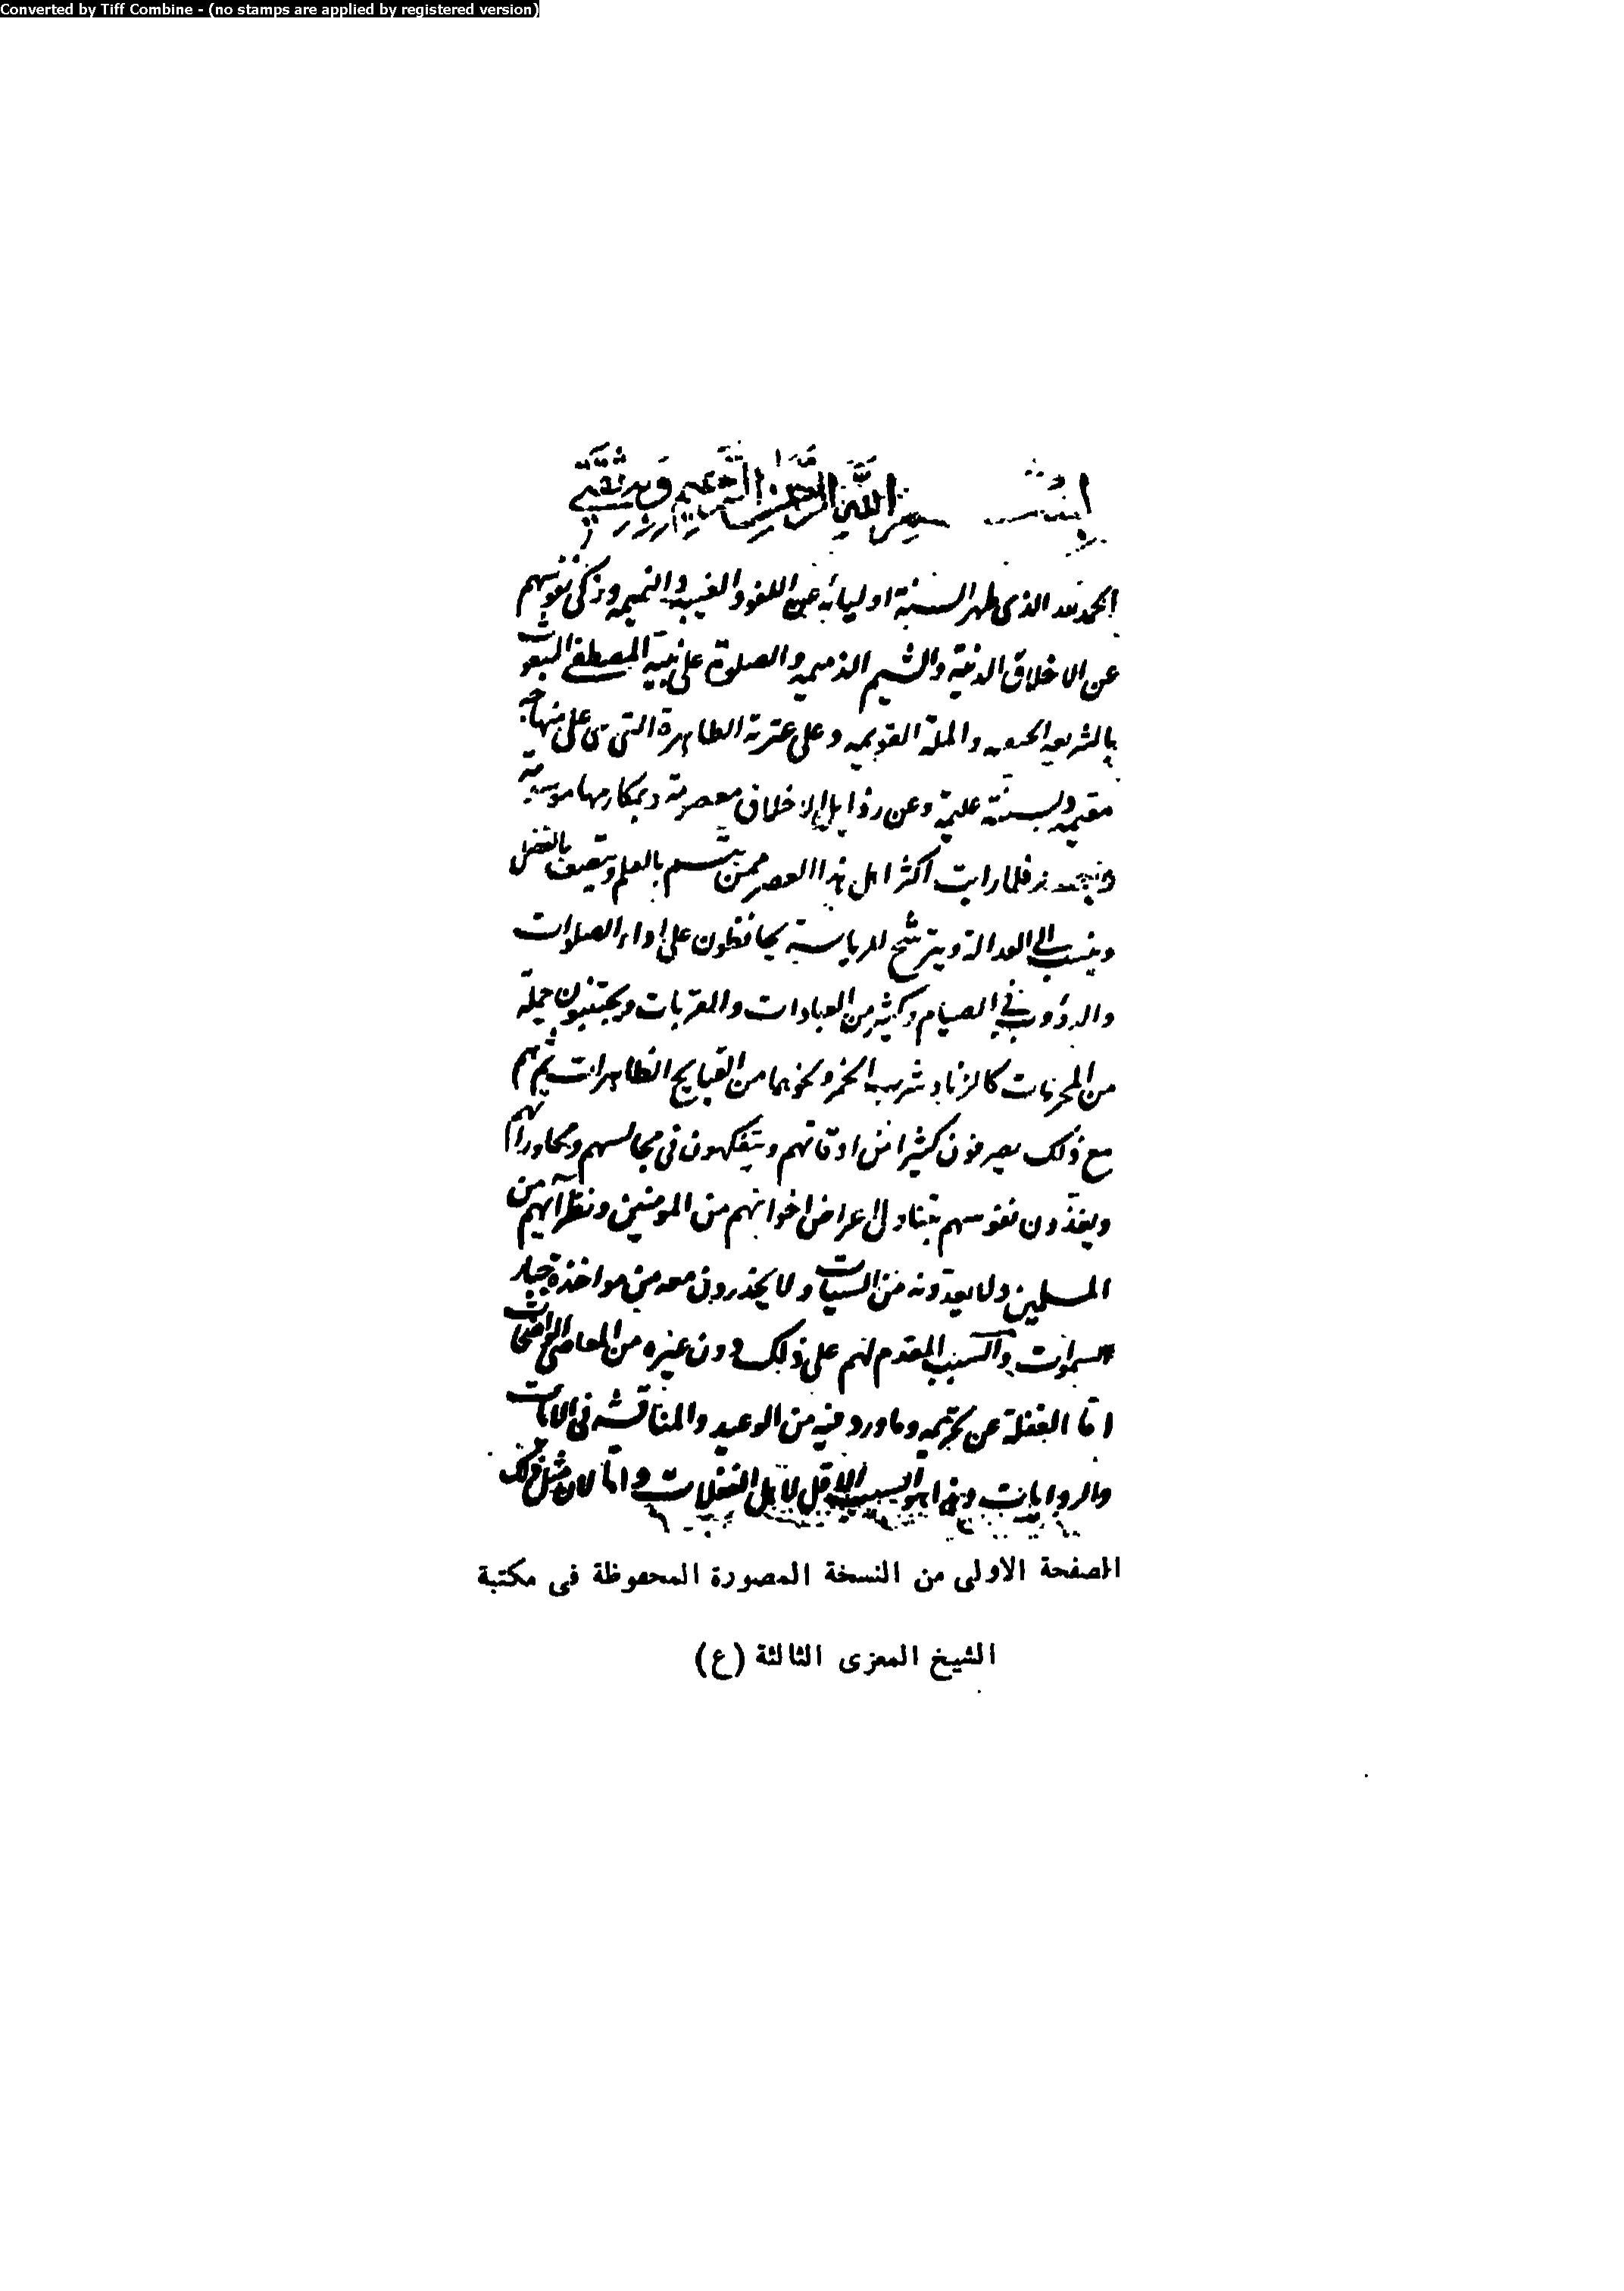 Converted by Tiff Combine - (no stamps are applied by registered version)
بسم الله الرحمن الرحيم وبه ثقتي
الحمد لله الذي طهر السنة اوليائه عن اللغو والغيبة والنميمه وزكى نفوسهم
عن الاخلاق الدنية والشيم الذميمه والصلوة على نبيه المصطفى المبعوث
بالشريعه الحنيفيه والملة القويمه وعلى عترته الطاهرة التي هي على منهاجه
مقيمه ولسنته عليمة وعن رذايل الاخلاق معصومة وبمكارمها موسومة
وبعد فلما رايت اكثر اهل هذا العصر ممن يتسم بالعلم ويتصف بالفضل
وينسب الى العدالة ويترشح للرياسة يحافظون على اداء الصلوات
والدؤوب في الصيام وكثير من العبادات والقربات ويجتنبون جملة
من المحرمات كالزنا وشرب الخمر ونحوهما من القبايح الظاهرات ثم هم
مع ذلك يصرفون كثيرا من اوقاتهم ويتفكهون في مجالسهم ومحاوراتهم
ويغذّون نفوسهم بتناول اعراض اخوانهم من المومنين ونظرائهم من
المسلمين ولا يعدّونه من السيات ولا يحذرون معه من مواخذة جبار
السموات والسبب المقدم لهم على ذلك دون غيره من المعاصي الواضحات
امّا الغفلة عن تحريمه وما ورد فيه من الوعيد والمناقشه في الايات
والروايات وهذا هو السبب الاقل لاهل الغفلات وامّا لان مثل ذلك
الصفحة الاولى من النسخة المصورة المحفوظة في مكتبة
الشيخ المعزى الثالثة (ع)